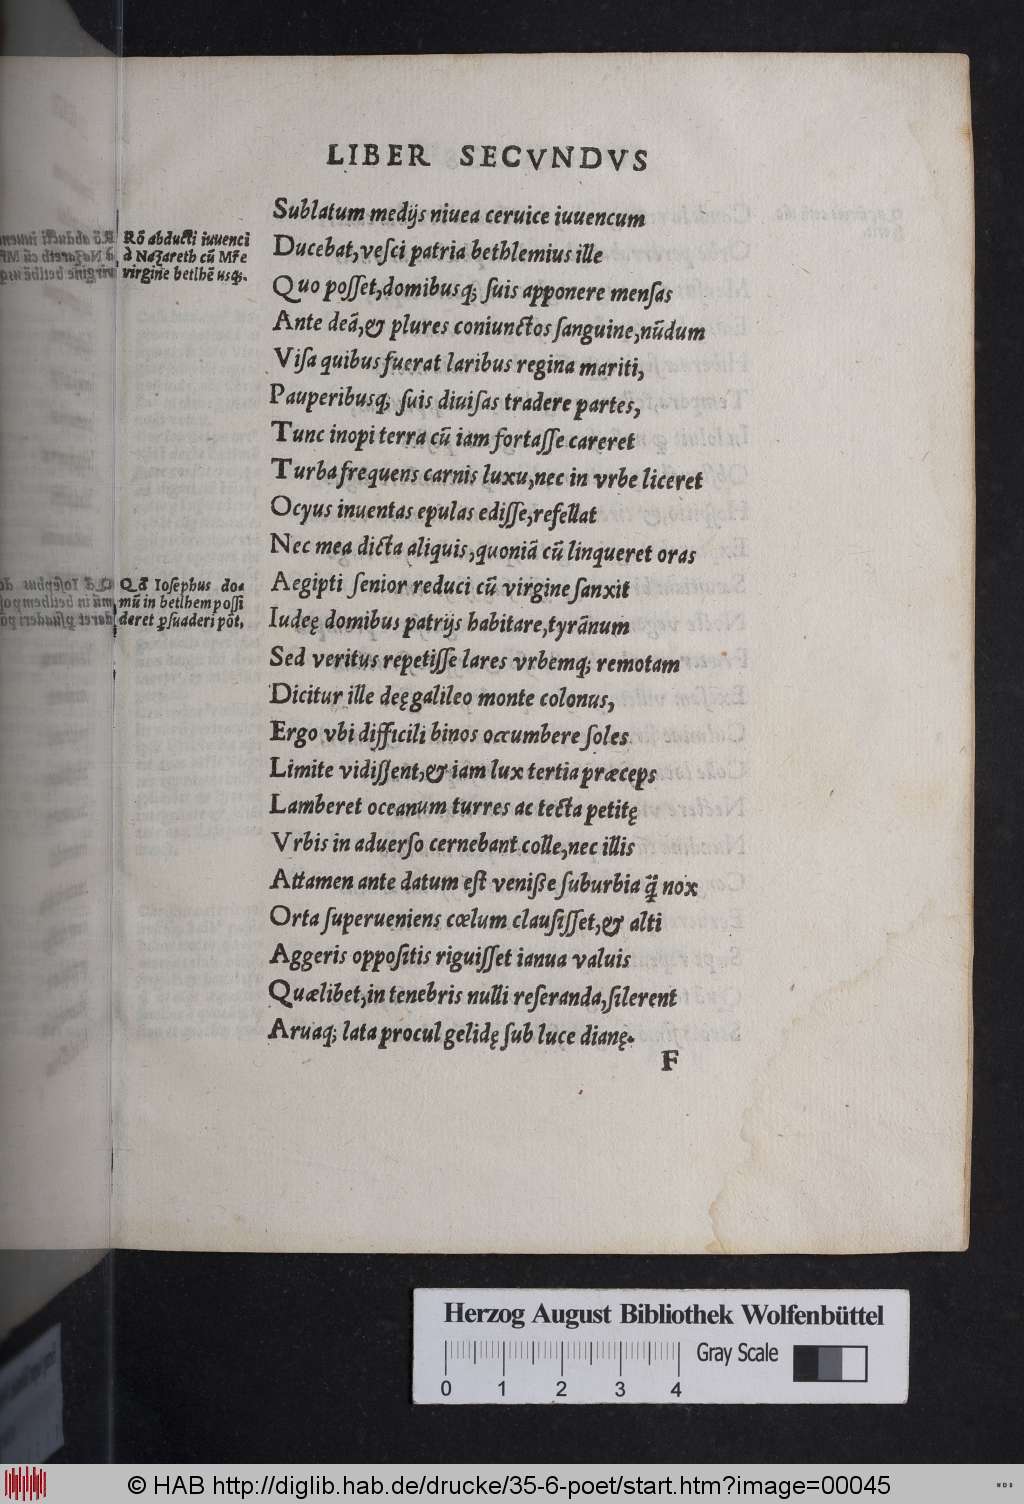 LIBER SECVNDVS
Rō abducti iuuenci
à Nazareth cū Mr̄e
virgine betlhē usq;.
Sublatum medijs niuea ceruice iuuencum
Ducebat,vesci patria bethlemius ille
Quo posset,domibusq; suis apponere mensas
Ante deā,& plures coniunctos sanguine,nūdum
Visa quibus fuerat laribus regina mariti,
Pauperibusq; suis diuisas tradere partes,
Tunc inopi terra cū iam fortasse careret
Turba frequens carnis luxu,nec in vrbe liceret
Ocyus inuentas epulas edisse,refellat
Nec mea dicta aliquis,quoniā cū linqueret oras
Qd̄ Iosephus do=
mū in betlhem possi
deret ꝑsuaderi pōt,
Aegipti senior reduci cū virgine sanxit
Iudeę domibus patrijs habitare,tyrānum
Sed veritus repetisse lares vrbemq; remotam
Dicitur ille deę galileo monte colonus,
Ergo vbi difficili binos occumbere soles
Limite vidissent,& iam lux tertia præceps
Lamberet oceanum turres ac tecta petitę
Vrbis in aduerso cernebant colle,nec illis
Attamen ante datum est venisse suburbia q̄̃ nox
Orta superueniens cœlum clausisset,& alti
Aggeris oppositis riguisset ianua valuis
Quælibet,in tenebris nulli reseranda,silerent
Aruaq; lata procul gelidę sub luce dianę.
F
Herzog August Bibliothek Wolfenbüttel
Gray Scale
0 1 2 3 4
© HAB http://diglib.hab.de/drucke/35-6-poet/start.htm?image=00045